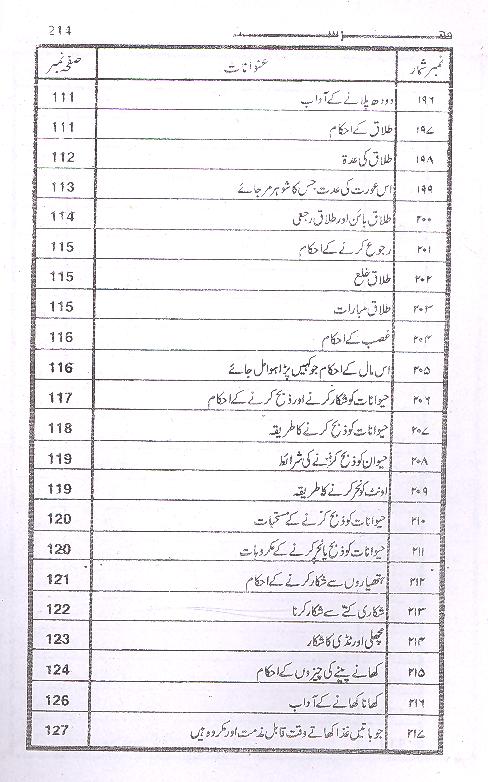 214 فہرست
نمبر شمار عنوانات صفحہ نمبر
۱۹۶ دودھ پلانے کے آداب 111
۱۹۷ طلاق کے احکام 111
۱۹۸ طلاق کی عدۃ 112
۱۹۹ اس عورت کی عدت جس کا شوہر مر جائے 113
۲۰۰ طلاق بائن اور طلاق رجعی 114
۲۰۱ رجوع کرنے کے احکام 115
۲۰۲ طلاق خلع 115
۲۰۳ طلاق مبارات 115
۲۰۴ غصب کے احکام 116
۲۰۵ اس مال کے احکام جو کہیں پڑا ہوا مل جائے 116
۲۰۶ حیوانات کو شکار کرنے اور ذبح کرنے کے احکام 117
۲۰۷ حیوانات کو ذبح کرنے کا طریقہ 118
۲۰۸ حیوان کو ذبح کرنے کی شرائط 119
۲۰۹ اونٹ کو نحر کرنے کا طریقہ 119
۲۱۰ حیوانات کو ذبح کرنے کے مستحبات 120
۲۱۱ حیوانات کو ذبح یا نحر کرنے کے مکروہات 120
۲۱۲ ہتھیاروں سے شکار کرنے کے احکام 121
۲۱۳ شکاری کتے سے شکار کرنا 122
۲۱۴ مچھلی اور ٹڈی کا شکار 123
۲۱۵ کھانے پینے کی چیزوں کے احکام 124
۲۱۶ کھانا کھانے کے آداب 126
۲۱۷ جو باتیں غذا کھاتے وقت قابل مذمت اور مکروہ ہیں 127